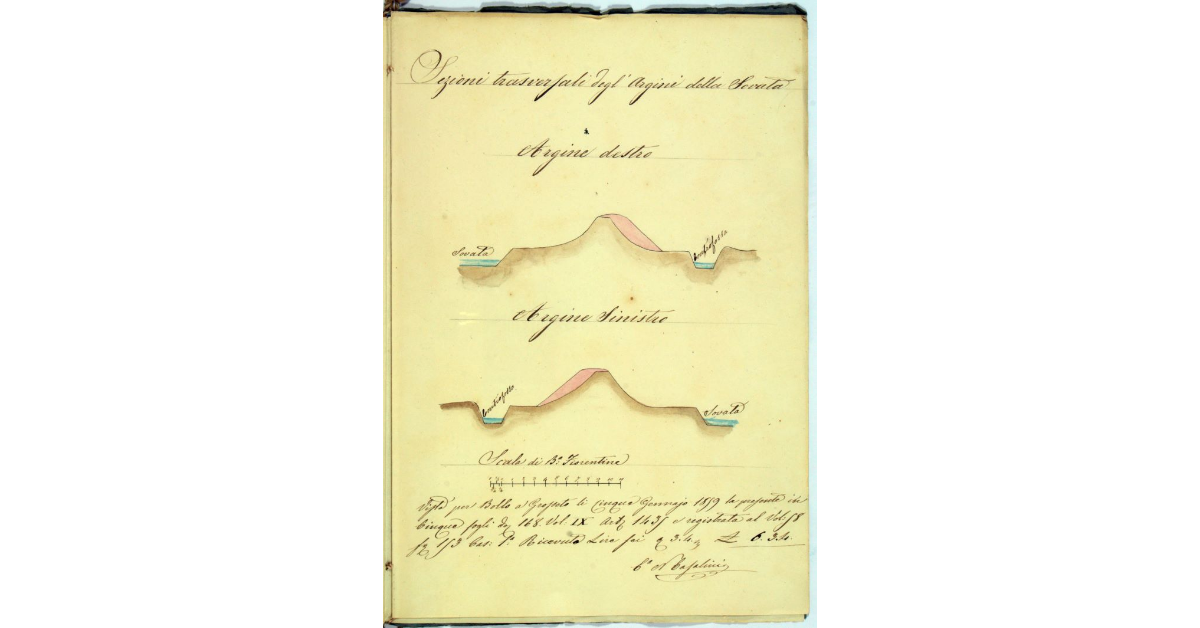 Sezioni trasversali degl'Argini della Sovata
Argine destro
Sovata
Controfosso
Argine Sinistro
Controfosso
Sovata
Scala di B.a Fiorentine
Vista per Bollo a Grosseto li cinque Gennajo 1859 la presente in
Cinque fogli 168 Vol. IX Art. 1435 e registrata al Vol. 58
153 Cas. 1.a Ricevuto Lire sei e 3.4. £ 6.3.4.